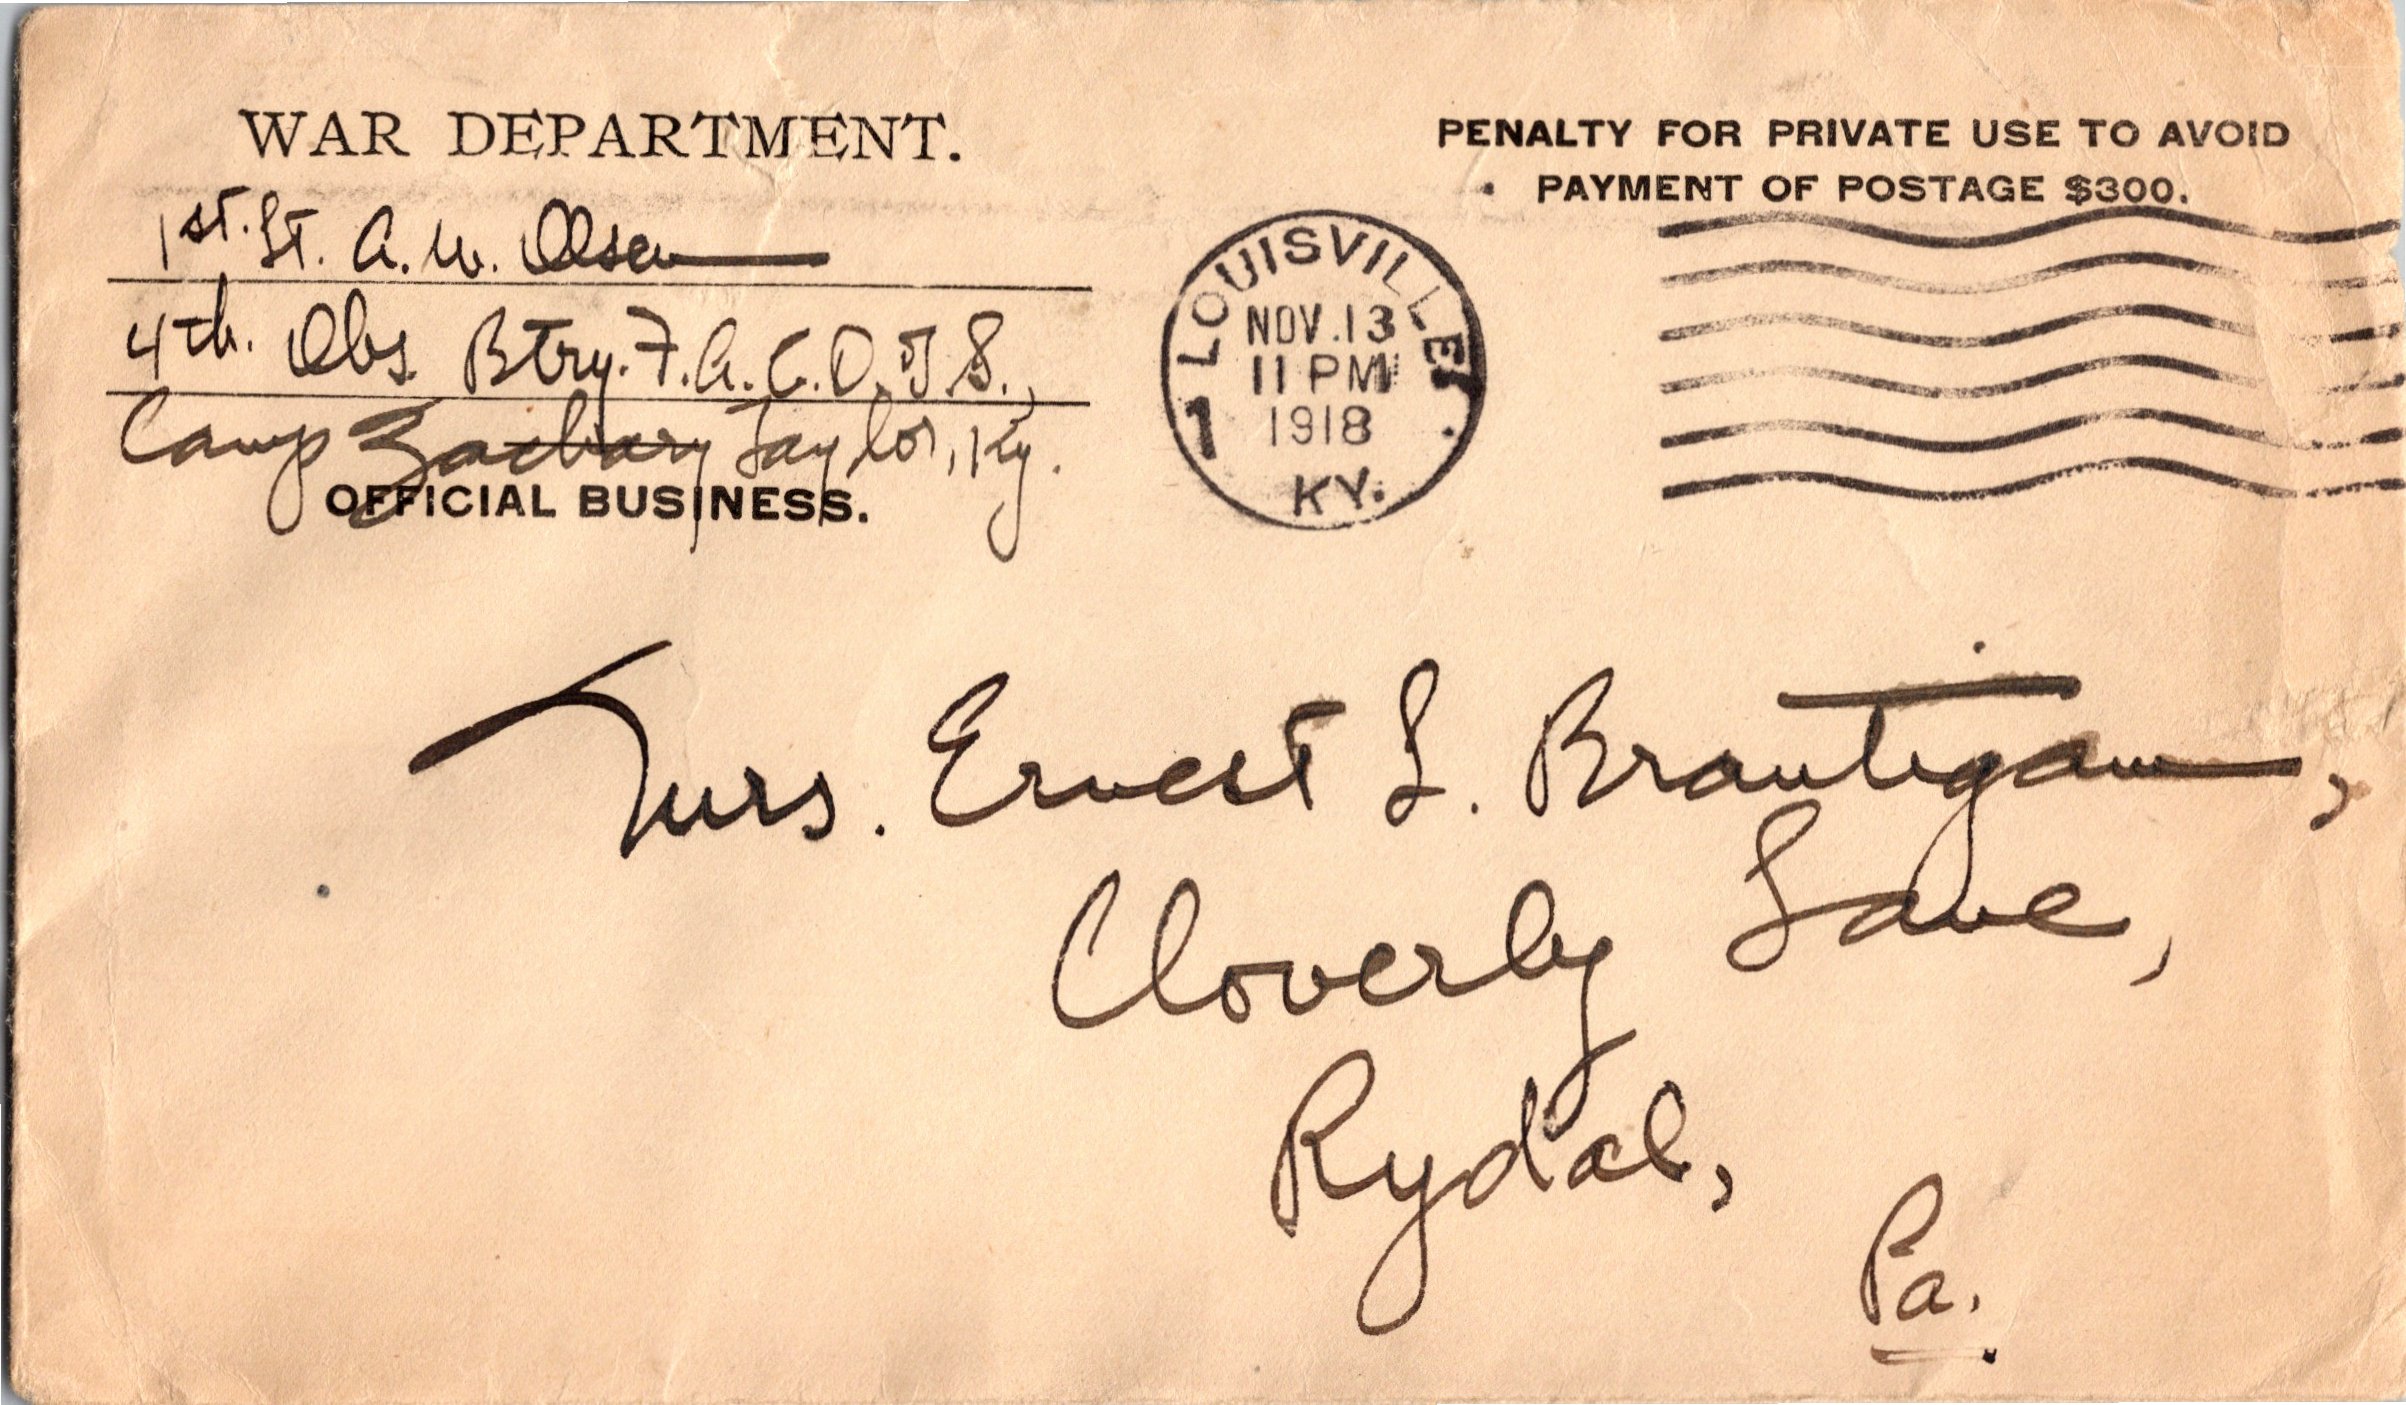 WAR DEPARTMENT.
1st. Lt. A. W. Olsen
4th. Obs. Btry. F. A. C. O. T. S.,
Camp Zachary Taylor, Ky.
OFFICIAL BUSINESS.
PENALTY FOR PRIVATE USE TO AVOID
PAYMENT OF POSTAGE $300.
LOUISVILLE
NOV. 13
11 PM
1918
1
KY.
Mrs. Ernest L. Brautigam,
Cloverly Lane,
Rydal,
Pa.